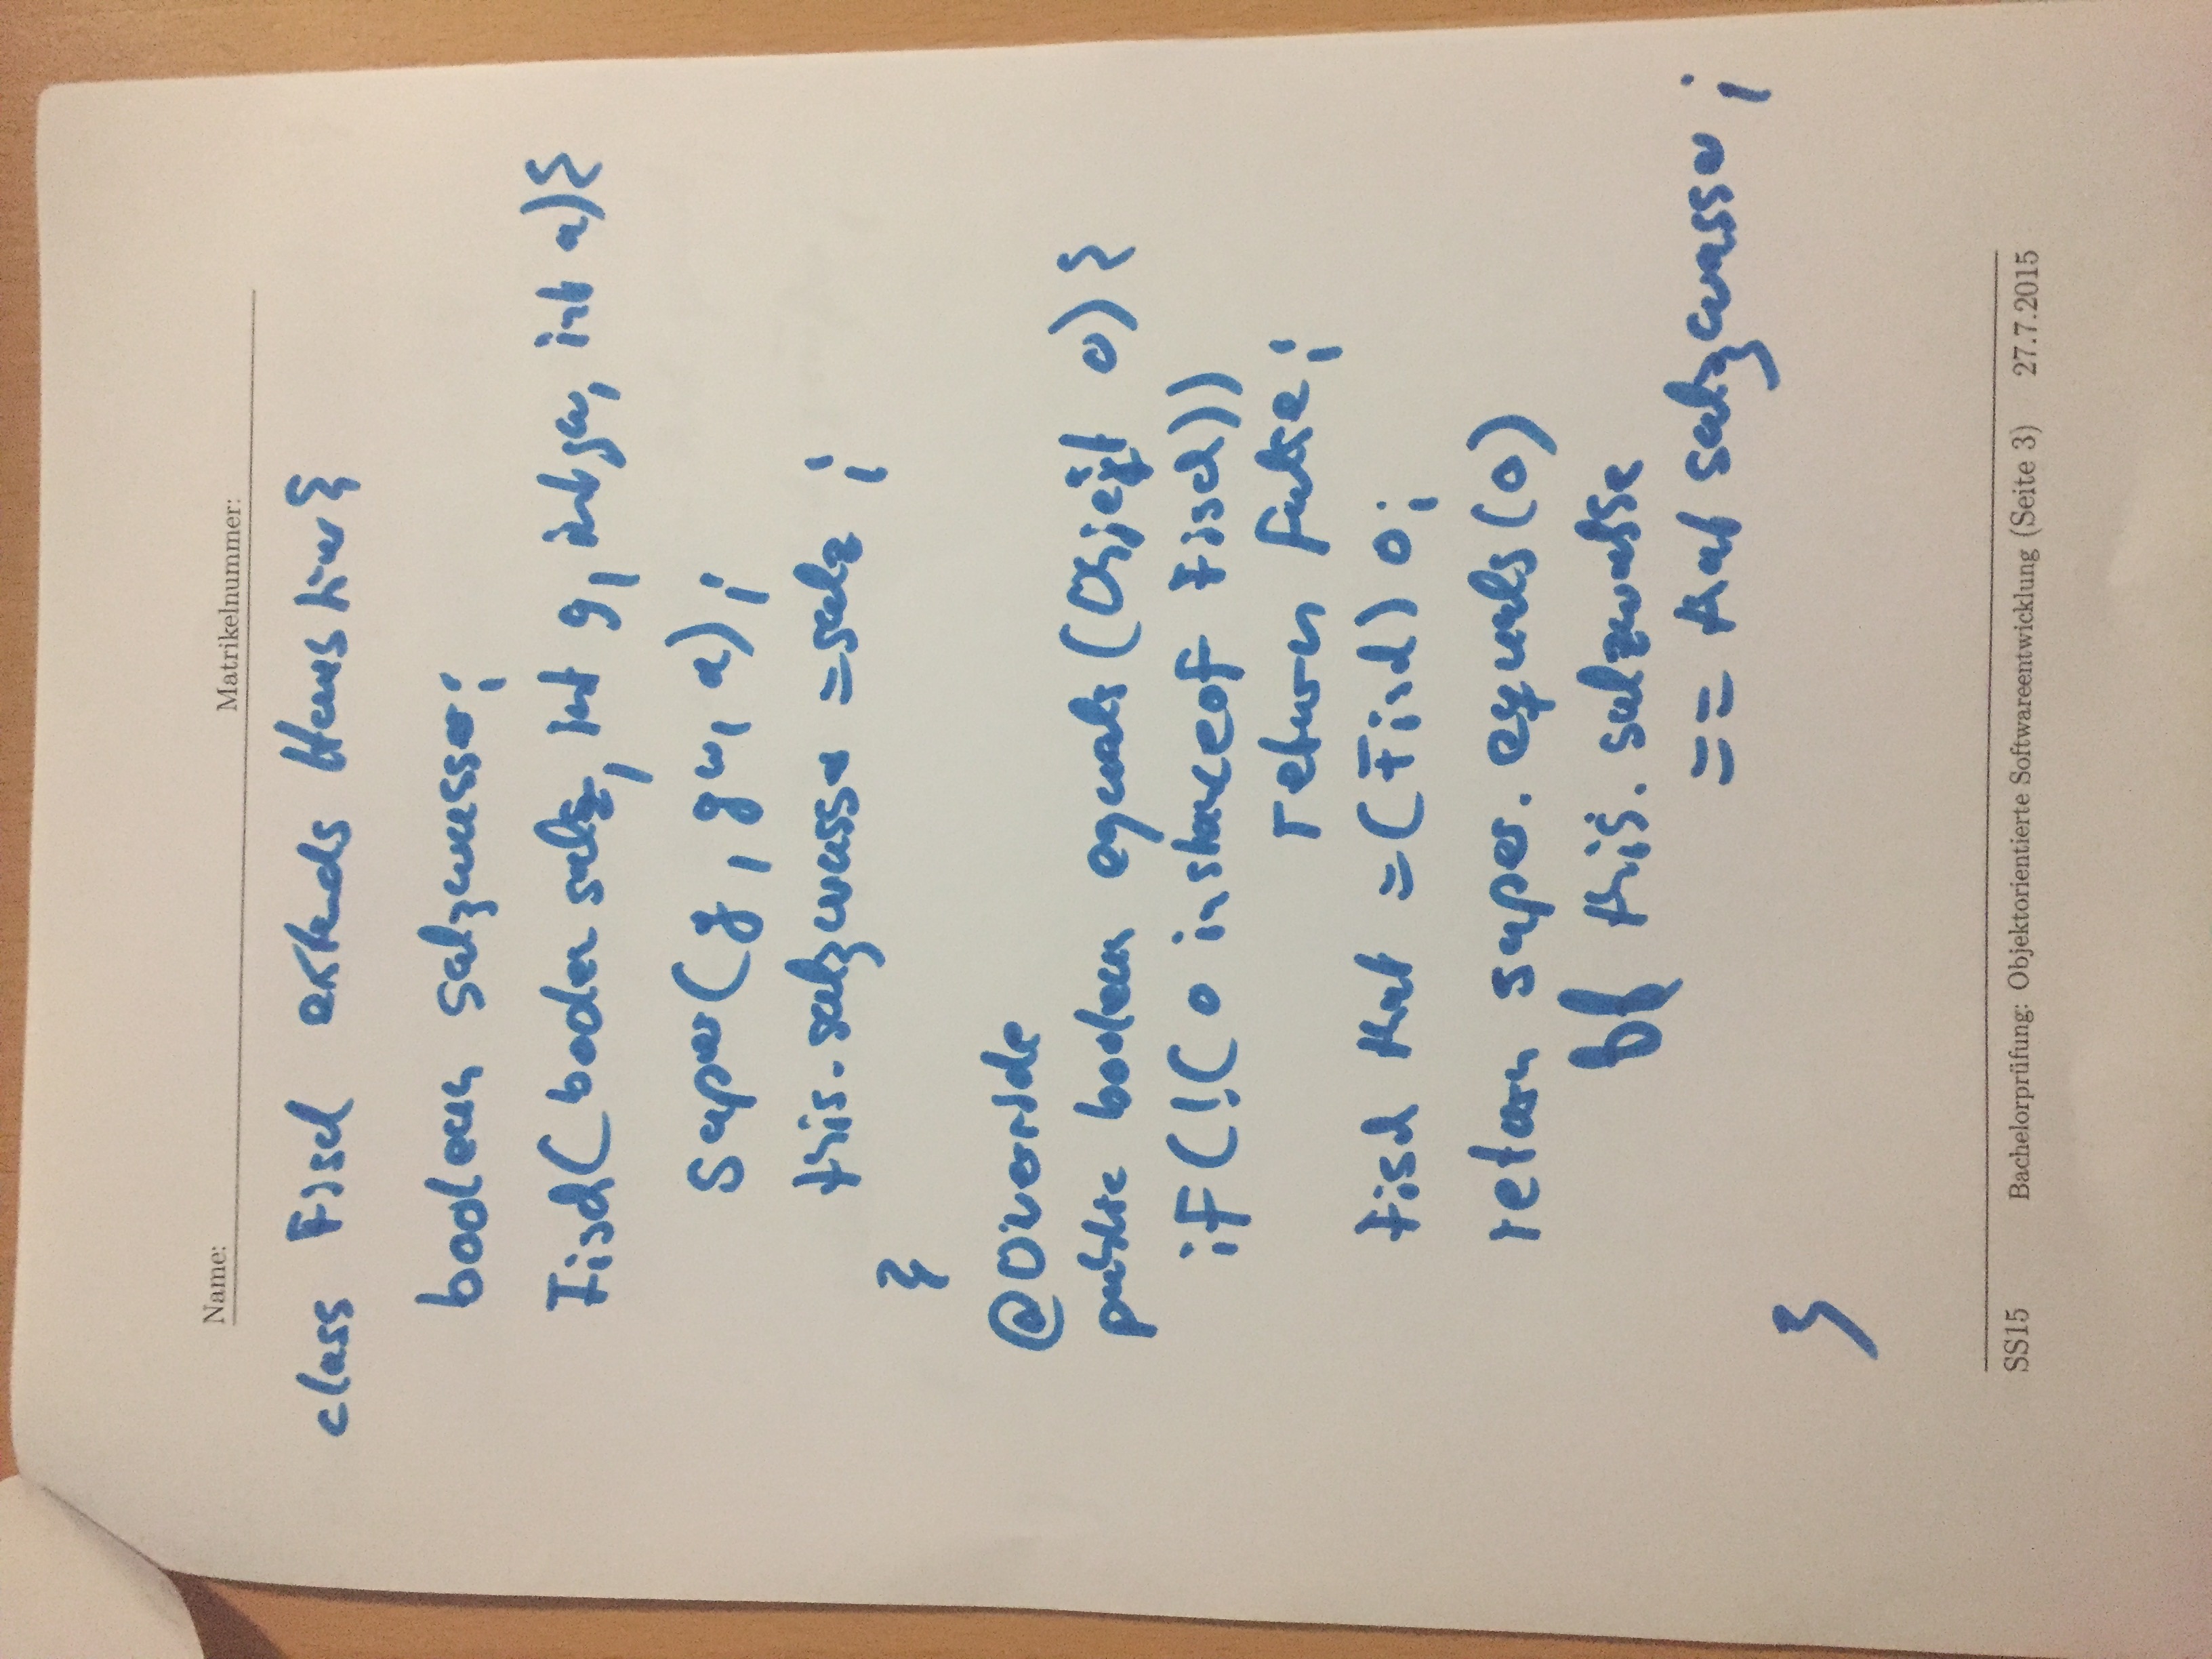 Name: Matrikelnummer:
class Fisch extends Haustier{
boolean salzwasser;
Fisch(boolean salz, int g, int gew, int a){
super(g, gw, a);
this.salzwasser = salz;
}
@Override
public boolean equals(Object o){
if(!(o instanceof Fisch))
return false;
Fisch that = (Fisch) o;
return super.equals(o)
&& this.salzwasser
== that salzwasser;
}
SS15 Bachelorprüfung: Objektorientierte Softwareentwicklung (Seite 3) 27.7.2015